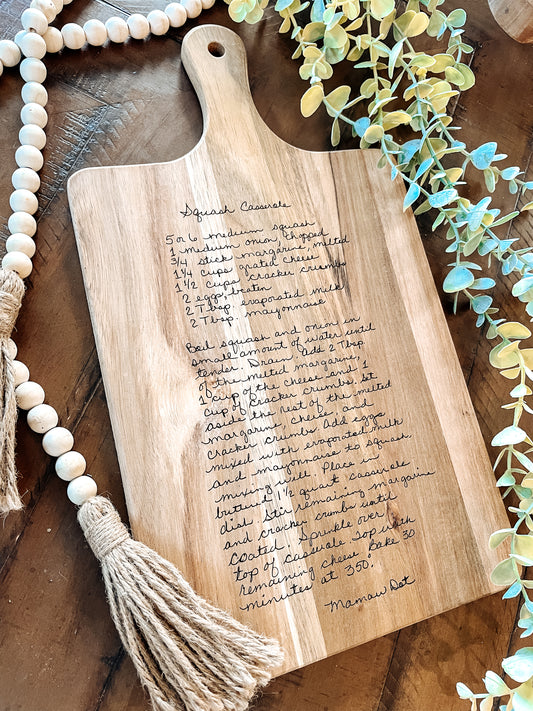 Squash Casserole
5 or 6 medium squash
1 medium onion, chopped
3/4 stick margarine, melted
1 1/4 cups grated cheese
1 1/2 cups cracker crumbs
2 eggs, beaten
2 Tbsp. evaporated milk
2 Tbsp. mayonnaise
Boil squash and onion in
small amount of water until
tender. Drain. Add 2 Tbsp.
of the melted margarine,
1 cup of the cheese and 1
cup of cracker crumbs. Set
aside the rest of the melted
margarine, cheese, and
cracker crumbs. Add eggs
mixed with evaporated milk
and mayonnaise to squash
mixing well. Place in
buttered 1 1/2 quart casserole
dish. Stir remaining margarine
and cracker crumbs until
coated. Sprinkle over
top of casserole. Top with
remaining cheese. Bake 30
minutes at 350°.
Mamaw Dot